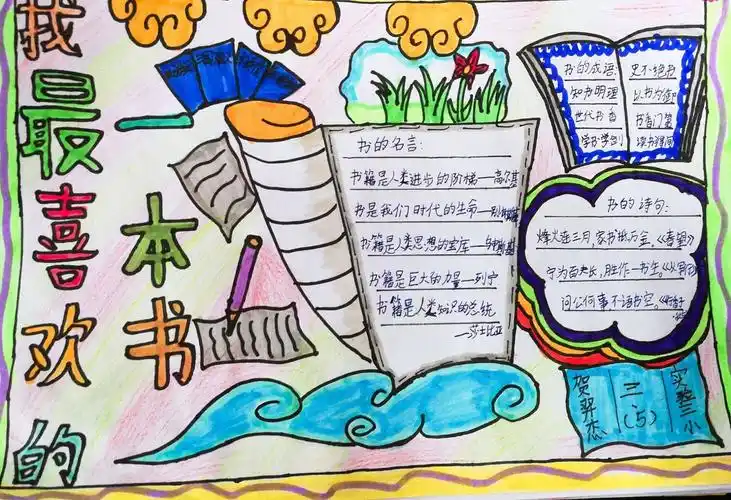 我最喜欢的
一本书
书的名言:
书籍是人类进步的阶梯—高尔基
书是我们时代的生命—别林斯基
书籍是人类思想的宝库—乌申斯基
书籍是巨大的力量—列宁
书籍是人类知识的总统
—莎士比亚
书的成语:
知书明理
世代书香
学书学剑
史不绝书
以书为御
书香门第
读书得间
书的诗句:
烽火连三月,家书抵万金。《春望》
宁为百夫长,胜作一书生。《从军行》
问公何事不语书空。
实验三小
三、(5)
贺羿杰